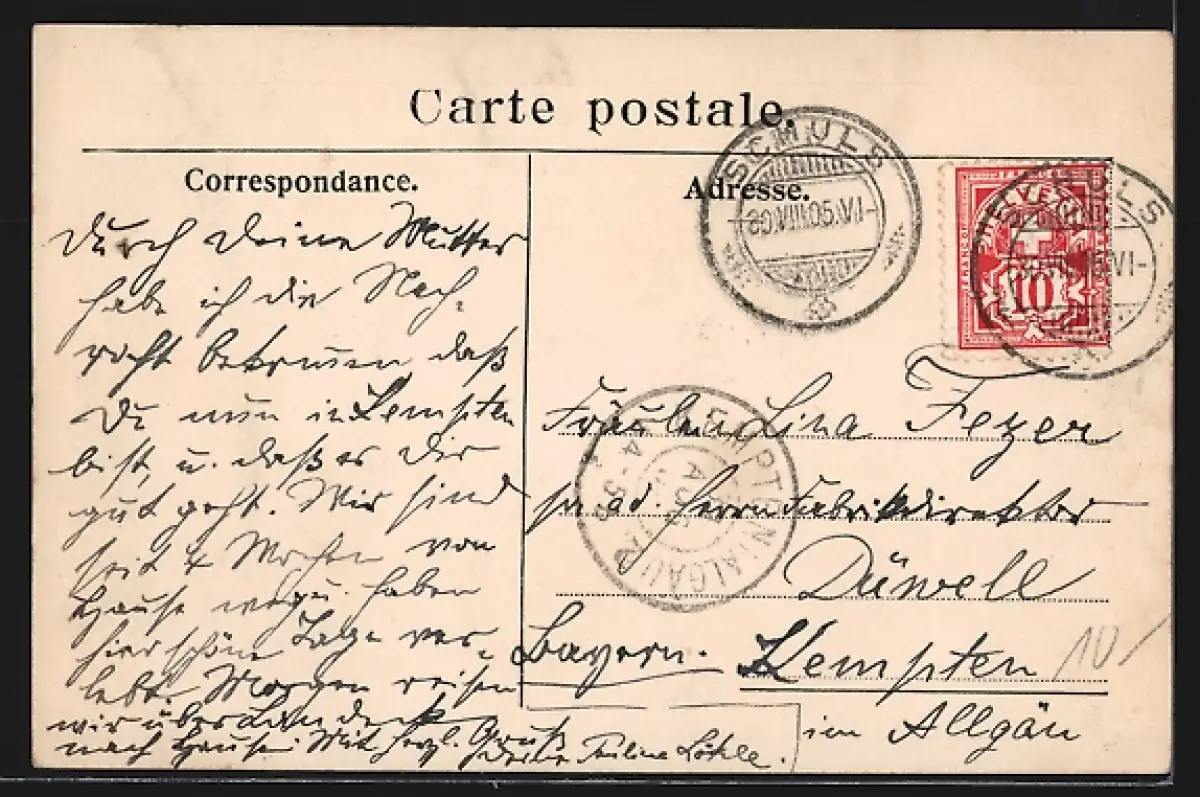 Carte postale.
Correspondance.
Adresse.
SCHULS
30.VIII.05.VI-
SCHULS
HELVETIA
FRANCO
10
KEMPTEN (ALGÄU)
durch Deine Mutter
habe ich die Nach-
richt bekommen daß
Du nun in Kempten
bist, u. daß es Dir
gut geht. Wir sind
seit 4 Wochen von
Hause weg u. haben
hier schöne Tage ver-
lebt. Morgen reisen
wir über Landeck
nach Hause. Mit herzl. Gruß
Deine Pauline Löhle.
Fräulein Lina Fezer
pr. ad. Herrn Fabrikdirektor
Düwell
Bayern. Kempten
im Allgäu
10/